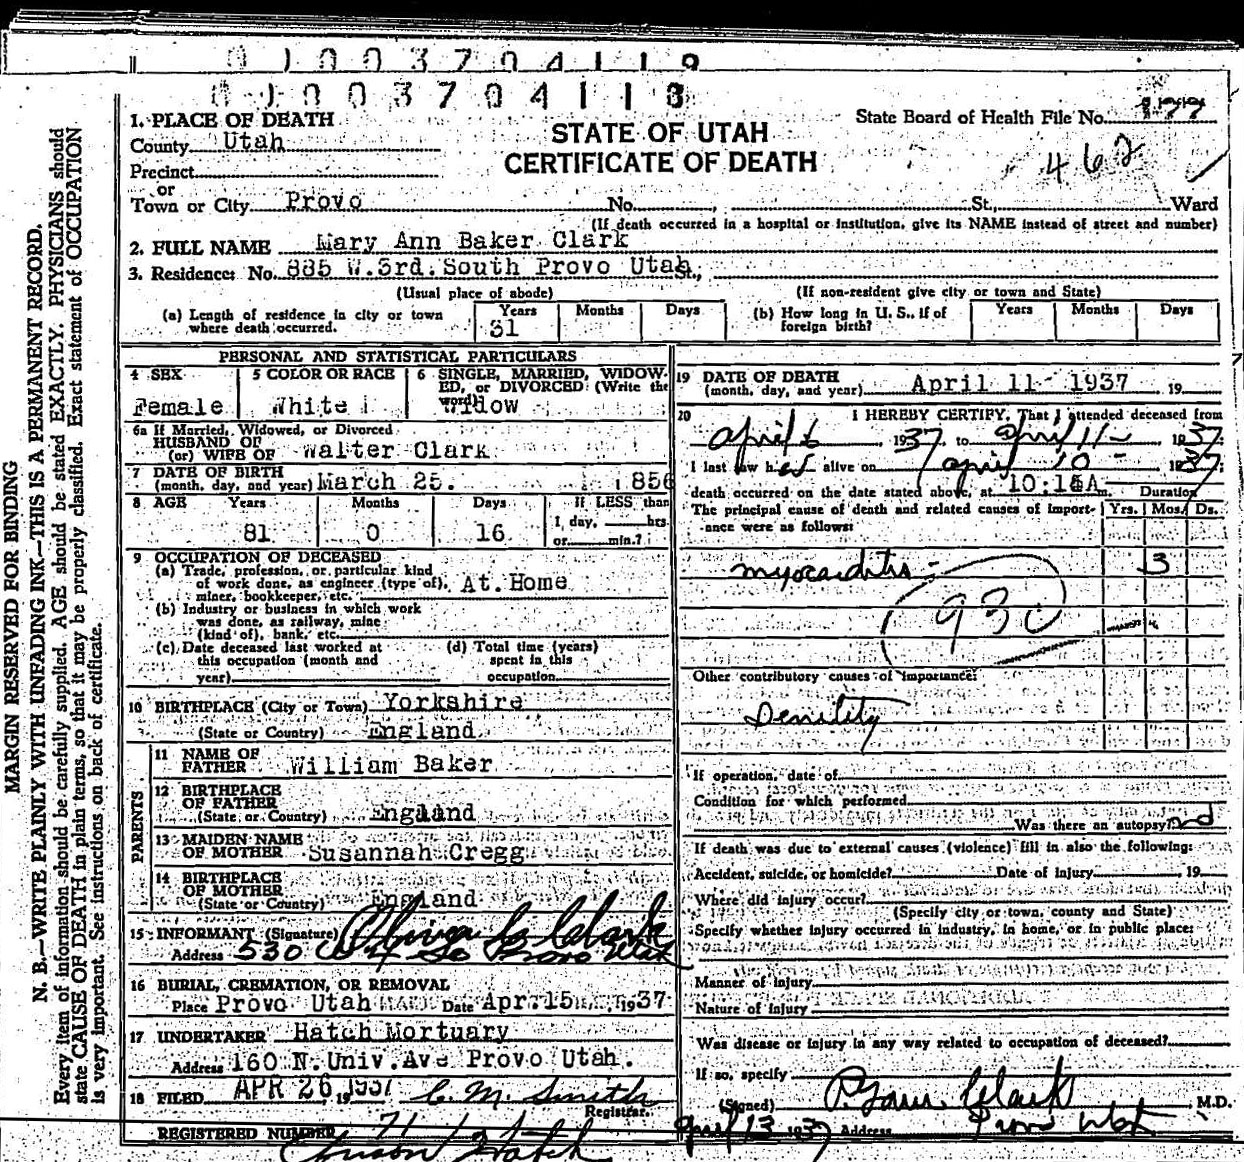 0 1 0 0 3 7 0 4 1 1 9
0 1 0 0 3 7 0 4 1 1 8
MARGIN RESERVED FOR BINDING
N. B.—WRITE PLAINLY WITH UNFADING INK—THIS IS A PERMANENT RECORD.
Every item of information should be carefully supplied. AGE should be stated EXACTLY. PHYSICIANS should
state CAUSE OF DEATH in plain terms, so that it may be properly classified. Exact statement of OCCUPATION
is very important. See instructions on back of certificate.
STATE OF UTAH
CERTIFICATE OF DEATH
State Board of Health File No.
462
1. PLACE OF DEATH
County Utah
Precinct
or
Town or City Provo No. , St., Ward
(If death occurred in a hospital or institution, give its NAME instead of street and number)
2. FULL NAME Mary Ann Baker Clark
3. Residence: No. 885 W.3rd.South Provo Utah St.,
(Usual place of abode) (If non-resident give city or town and State)
(a) Length of residence in city or town where death occurred. Years 31 Months Days
(b) How long in U. S., if of foreign birth? Years Months Days
PERSONAL AND STATISTICAL PARTICULARS
4 SEX Female
5 COLOR OR RACE White
6 SINGLE, MARRIED, WIDOWED, or DIVORCED: (Write the word) Widow
6a If Married, Widowed, or Divorced
HUSBAND OF
(or) WIFE OF Walter Clark
7 DATE OF BIRTH
(month, day, and year) March 25. 1856
8 AGE Years 81 Months 0 Days 16 If LESS than
1 day, hrs
or min.?
9 OCCUPATION OF DECEASED
(a) Trade, profession, or particular kind
of work done, as engineer (type of), At Home
miner, bookkeeper, etc.
(b) Industry or business in which work
was done, as railway, mine
(kind of), bank, etc.
(c) Date deceased last worked at
this occupation (month and
year)
(d) Total time (years)
spent in this
occupation
10 BIRTHPLACE (City or Town) Yorkshire
(State or Country) England
PARENTS
11 NAME OF
FATHER William Baker
12 BIRTHPLACE
OF FATHER
(State or Country) England
13 MAIDEN NAME
OF MOTHER Susannah Cregg
14 BIRTHPLACE
OF MOTHER
(State or Country) England
15 INFORMANT (Signature) Clark
Address 530 W 4 So Provo Utah
16 BURIAL, CREMATION, OR REMOVAL
Place Provo Utah Date Apr. 15 , 1937
17 UNDERTAKER Hatch Mortuary
Address 160 N. Univ. Ave Provo Utah.
18 FILED APR 26 1937, 19 C. M. Smith
Registrar.
REGISTERED NUMBER 71
Hatch
19 DATE OF DEATH
(month, day, and year) April 11- 1937 19
20 I HEREBY CERTIFY, That I attended deceased from
April 6, 1937, to April 11-, 1937;
I last saw her alive on April 10 - 1937;
death occurred on the date stated above, at 10:15A m. Duration
The principal cause of death and related causes of importance were as follows: Yrs. Mos. Ds.
myocarditis - 3
930
Other contributory causes of importance:
Senility
If operation, date of
Condition for which performed
Was there an autopsy? no
If death was due to external causes (violence) fill in also the following:
Accident, suicide, or homicide? Date of injury , 19
Where did injury occur?
(Specify city or town, county and State)
Specify whether injury occurred in industry, in home, or in public place:
Manner of injury
Nature of injury
Was disease or injury in any way related to occupation of deceased?
If so, specify
(Signed) Clark, M.D.
April 13 1937 Address Provo Utah